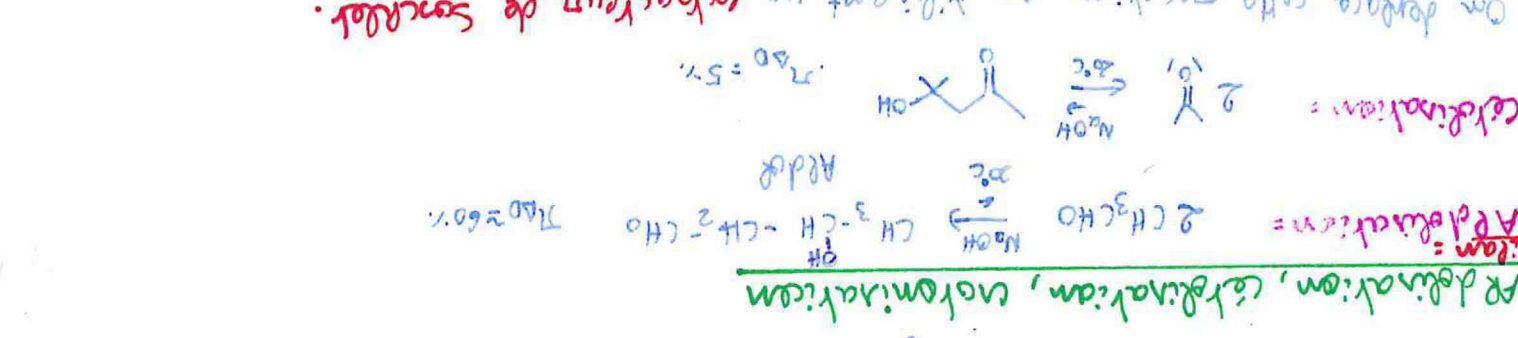 Aldolisation, cétolisation, crotonisation
ilan =
OH
Aldolisation = 2CH3CHO NaOH ⇌ 20°C CH3-CH-CH2-CHO ηAD = 60%
Aldol
Cétolisation = 2 O NaOH ⇌ 20°C O OH ηAD = 5%
On déplace cette en utilisant de Soxhlet.